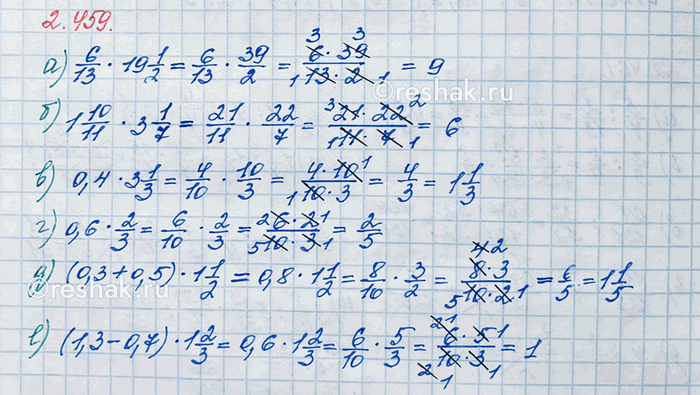 2.459.
а) 6/13 · 19 1/2 = 6/13 · 39/2 = 6 · 39 / 13 · 2 = 9
б) 1 10/11 · 3 1/7 = 21/11 · 22/7 = 21 · 22 / 11 · 7 = 6
в) 0,4 · 3 1/3 = 4/10 · 10/3 = 4 · 10 / 10 · 3 = 4/3 = 1 1/3
г) 0,6 · 2/3 = 6/10 · 2/3 = 6 · 2 / 10 · 3 = 2/5
д) (0,3 + 0,5) · 1 1/2 = 0,8 · 1 1/2 = 8/10 · 3/2 = 8 · 3 / 10 · 2 = 6/5 = 1 1/5
е) (1,3 − 0,7) · 1 2/3 = 0,6 · 1 2/3 = 6/10 · 5/3 = 6 · 5 / 10 · 3 = 1
reshak.ru
reshak.ru